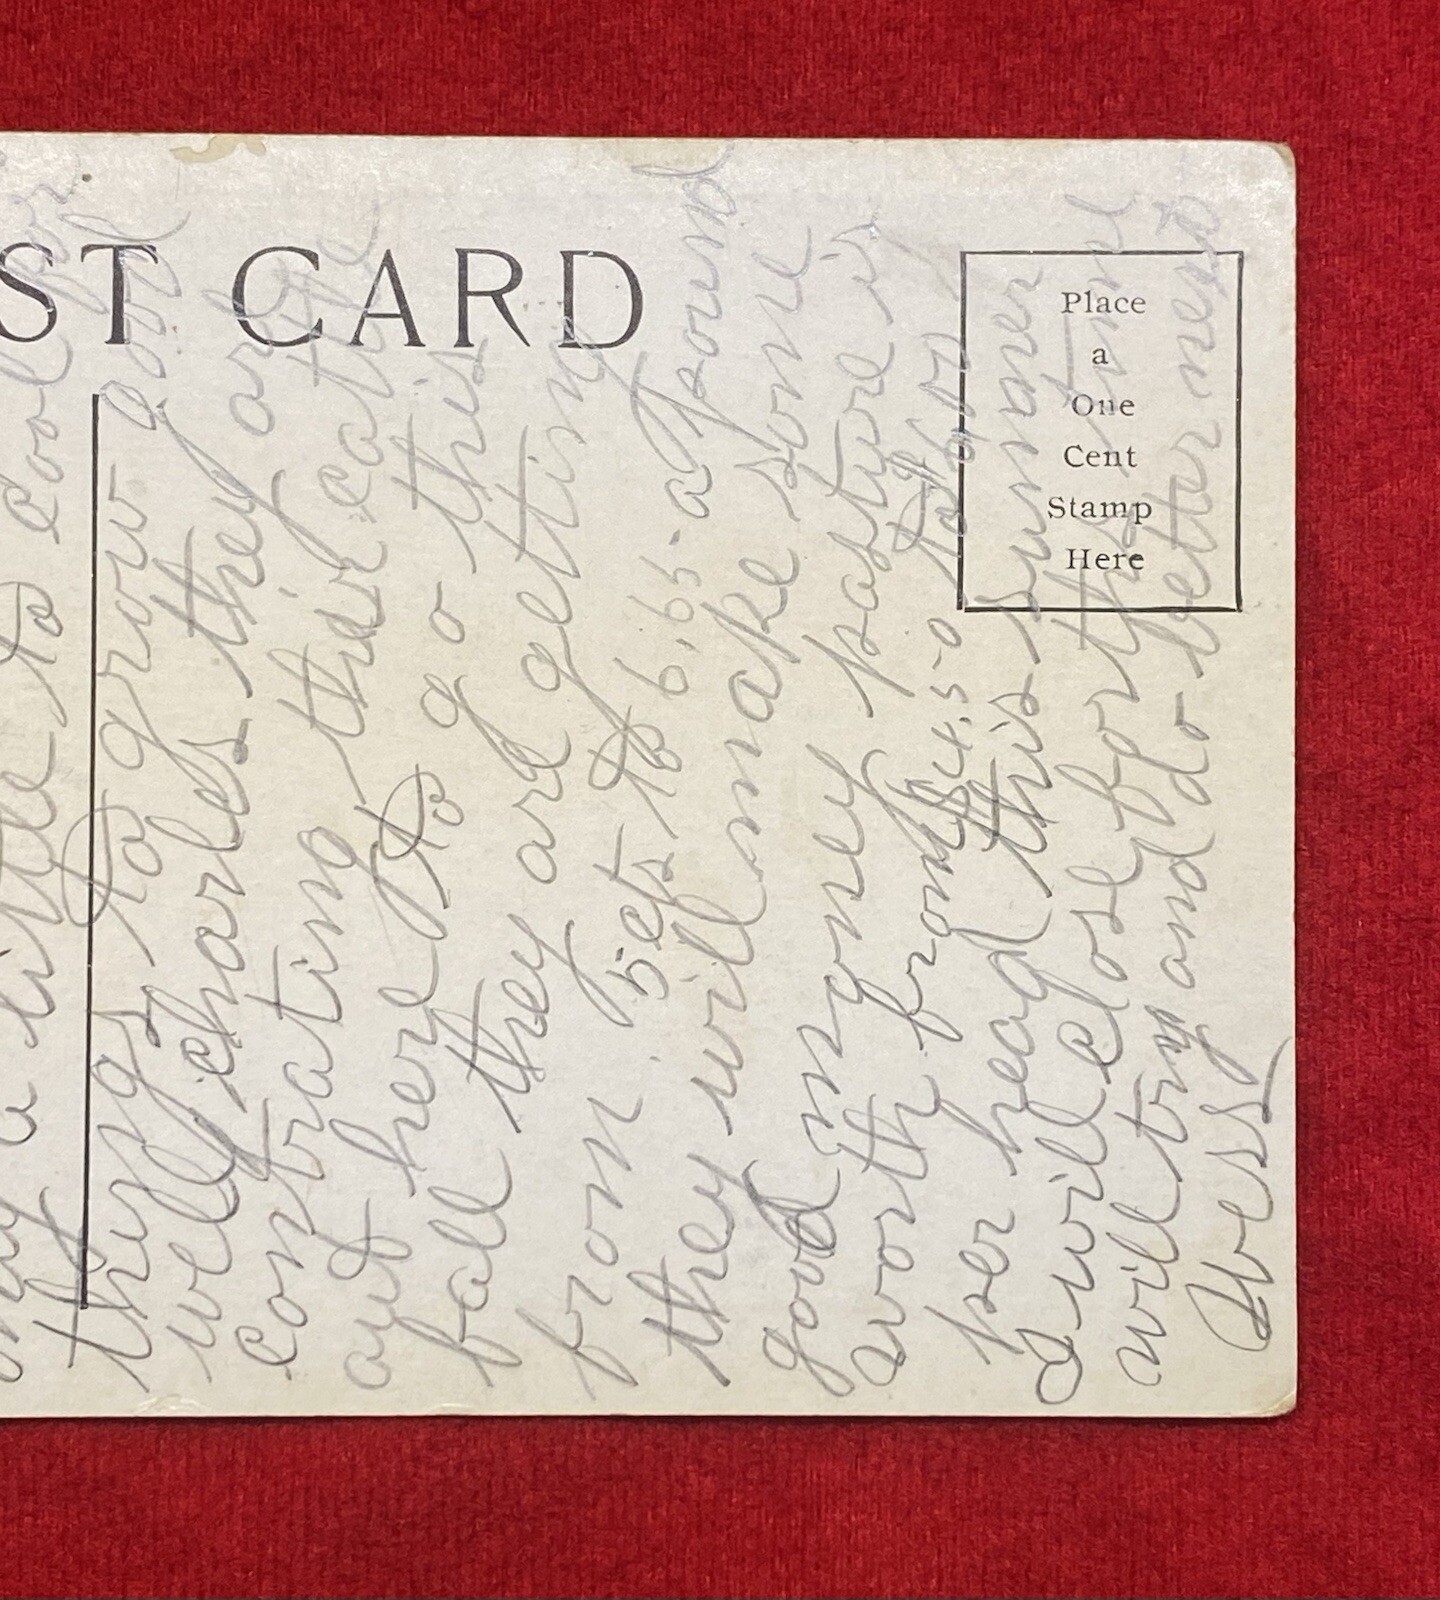 ST CARD
Place
a
One
Cent
Stamp
Here
a little to cool for
things to grow good
well charles they are
contrating thir catle
out here to go this
fall they are getting
from 5cts to 6,65 a Pound
they will make some
good money pasture is
worth from $4.50 to
per head this summer
I will close for this time
will try and do better next
Wess